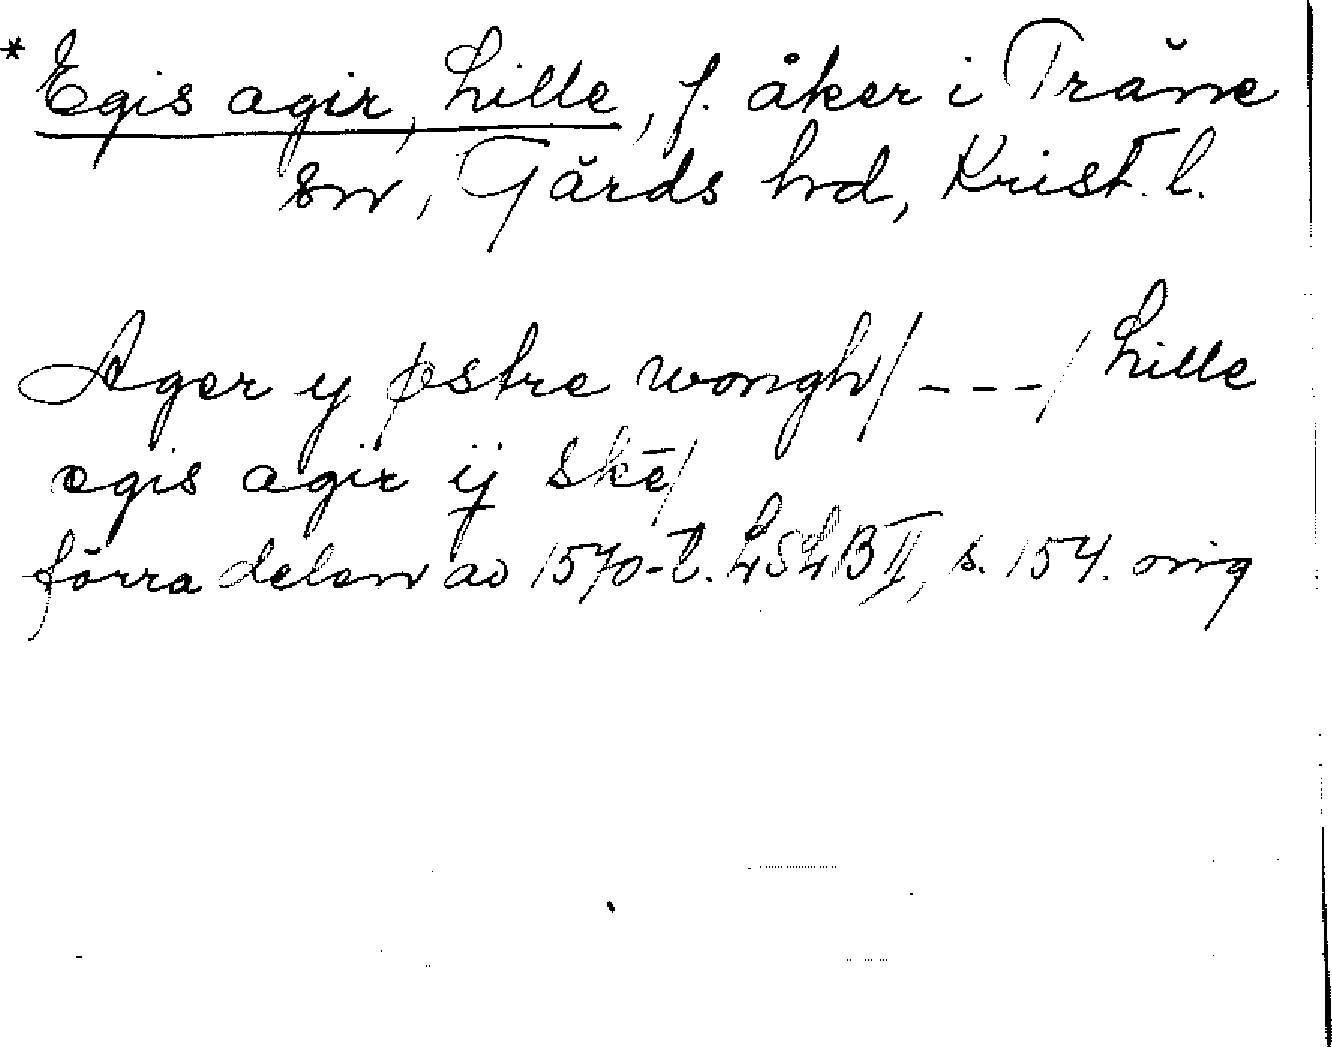 * Egis agir, Lille, f. åker i Träne
sn, Gärds hd, Krist. l.
Ager y østre wongh/---/ Lille
egis agir ij skē/
förra delen av 1570-t. LSLB II, s. 154. orig